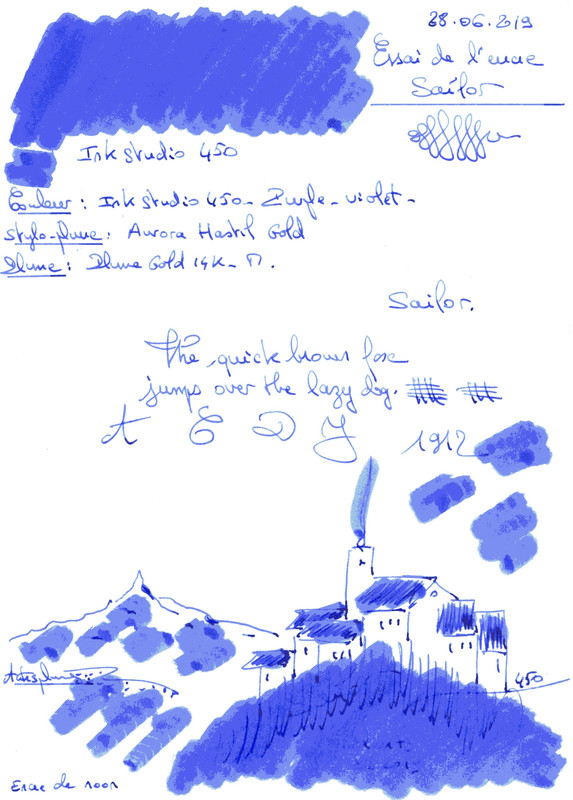 28.06.2019
Essai de l'encre
Sailor
Ink studio 450
Couleur : Ink studio 450 - Purple - violet -
stylo-plume : Aurora Hastil Gold
Plume : Plume Gold 14K - M.
Sailor.
The quick brown fox
jumps over the lazy dog.
A E D J 1912
450